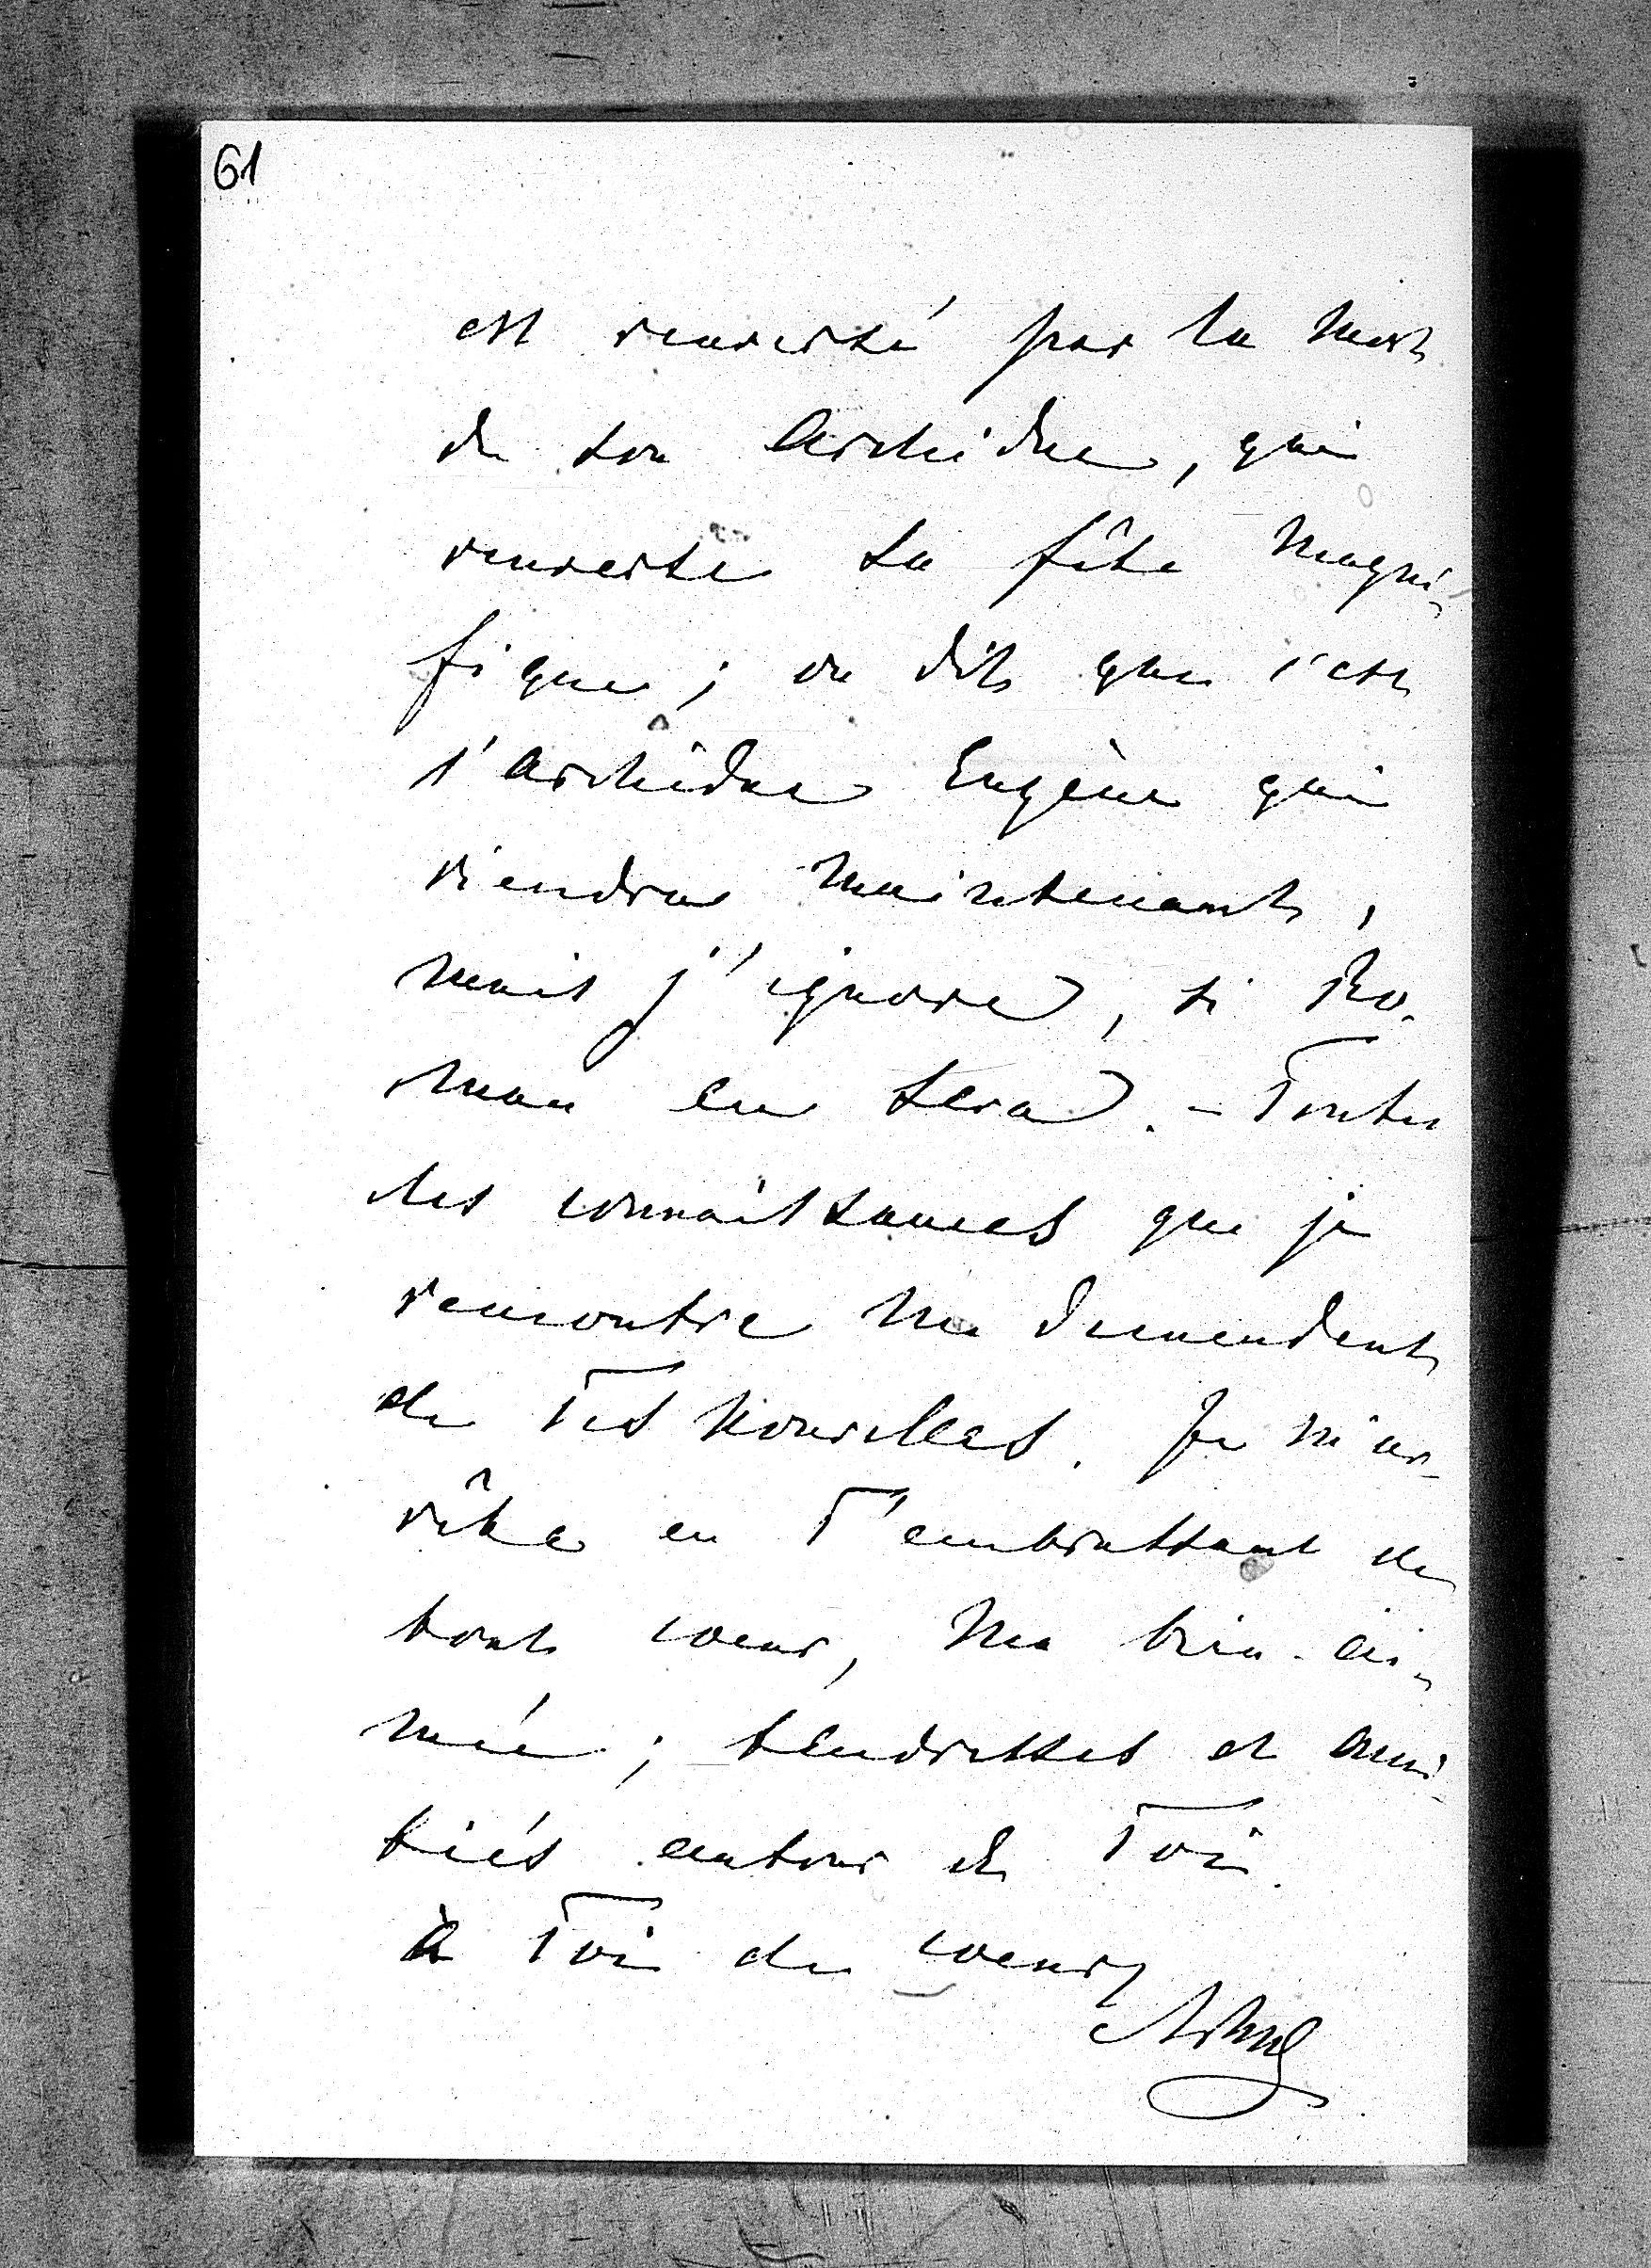 61
est renversé par la mort
de son Archiduc, qui
renverse sa fête magni-
fique ; on dit que c'est
l'archiduc Eugène qui
viendra maintenant,
mais j'ignore, si Ro-
man en sera. – Toutes
les connaissances que je
rencontre me demandent
de Tes nouvelles. Je m'ar-
rête en T'embrassant de
tout coeur, ma bien-ai-
mée ; tendresses et ami-
tiés autour de Toi.
à Toi de coeur